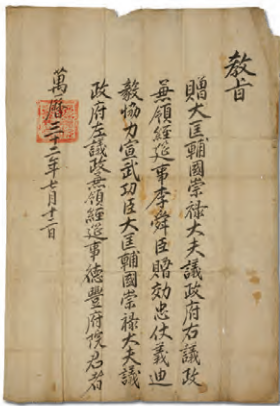 教旨
贈大匡輔國崇祿大夫議政府右議政
兼領經筵事李舜臣贈効忠仗義迪
毅協力宣武功臣大匡輔國崇祿大夫議
政府左議政兼領經筵事德豊府院君者
萬曆三十二年七月十二日